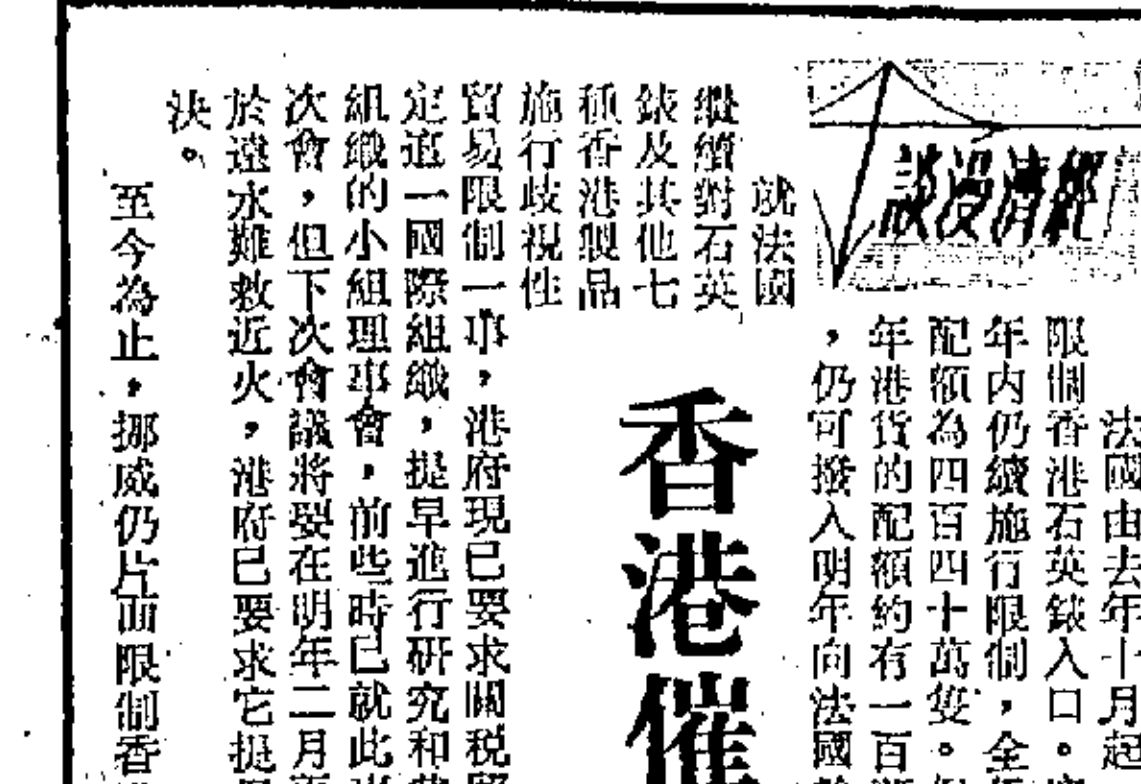 經濟漫談
香港催
法國由去年十月起
限制香港石英錶入口。
年內仍續施行限制，全
配額為四百四十萬隻。
年港貨的配額約有一百
，仍可撥入明年向法國
就法國
繼續對石英
錶及其他七
種香港製品
施行歧視性
貿易限制一事，港府現已要求關稅
定這一國際組織，提早進行研究和
組織的小組理事會，前些時已就此
次會，但下次會議將要在明年二月
於遠水難救近火，港府已要求它提
決。
至今為止，挪威仍片面限制香